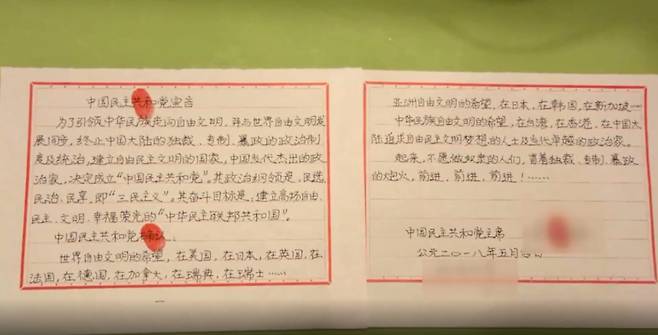 中国民主共和党宣言
为了引领中华民族走向自由文明，并与世界自由文明发
展同步，终止中国大陆的独裁、专制、暴政的政治制
度及统治，建立自由民主文明的国家，中国当代杰出的政
治家，决定成立“中国民主共和党”。其政治纲领是，民选、
民治、民享，即“三民主义”。其奋斗目标是，建立高扬自由、
民主、文明、幸福荣光的“中华民主联邦共和国”。
中国民主共和党
世界自由文明的希望，在美国，在日本，在英国，在
法国，在德国，在加拿大，在瑞典，在瑞士……
亚洲自由文明的希望，在日本，在韩国，在新加坡…
中华民族自由文明的希望，在台湾，在香港，在中国大
陆追求自由民主文明梦想的人士及当代卓越的政治家。
起来，不愿做奴隶的人们，冒着独裁、专制、暴政
的炮火，前进，前进，前进！……
中国民主共和党主席
公元二〇一八年五月